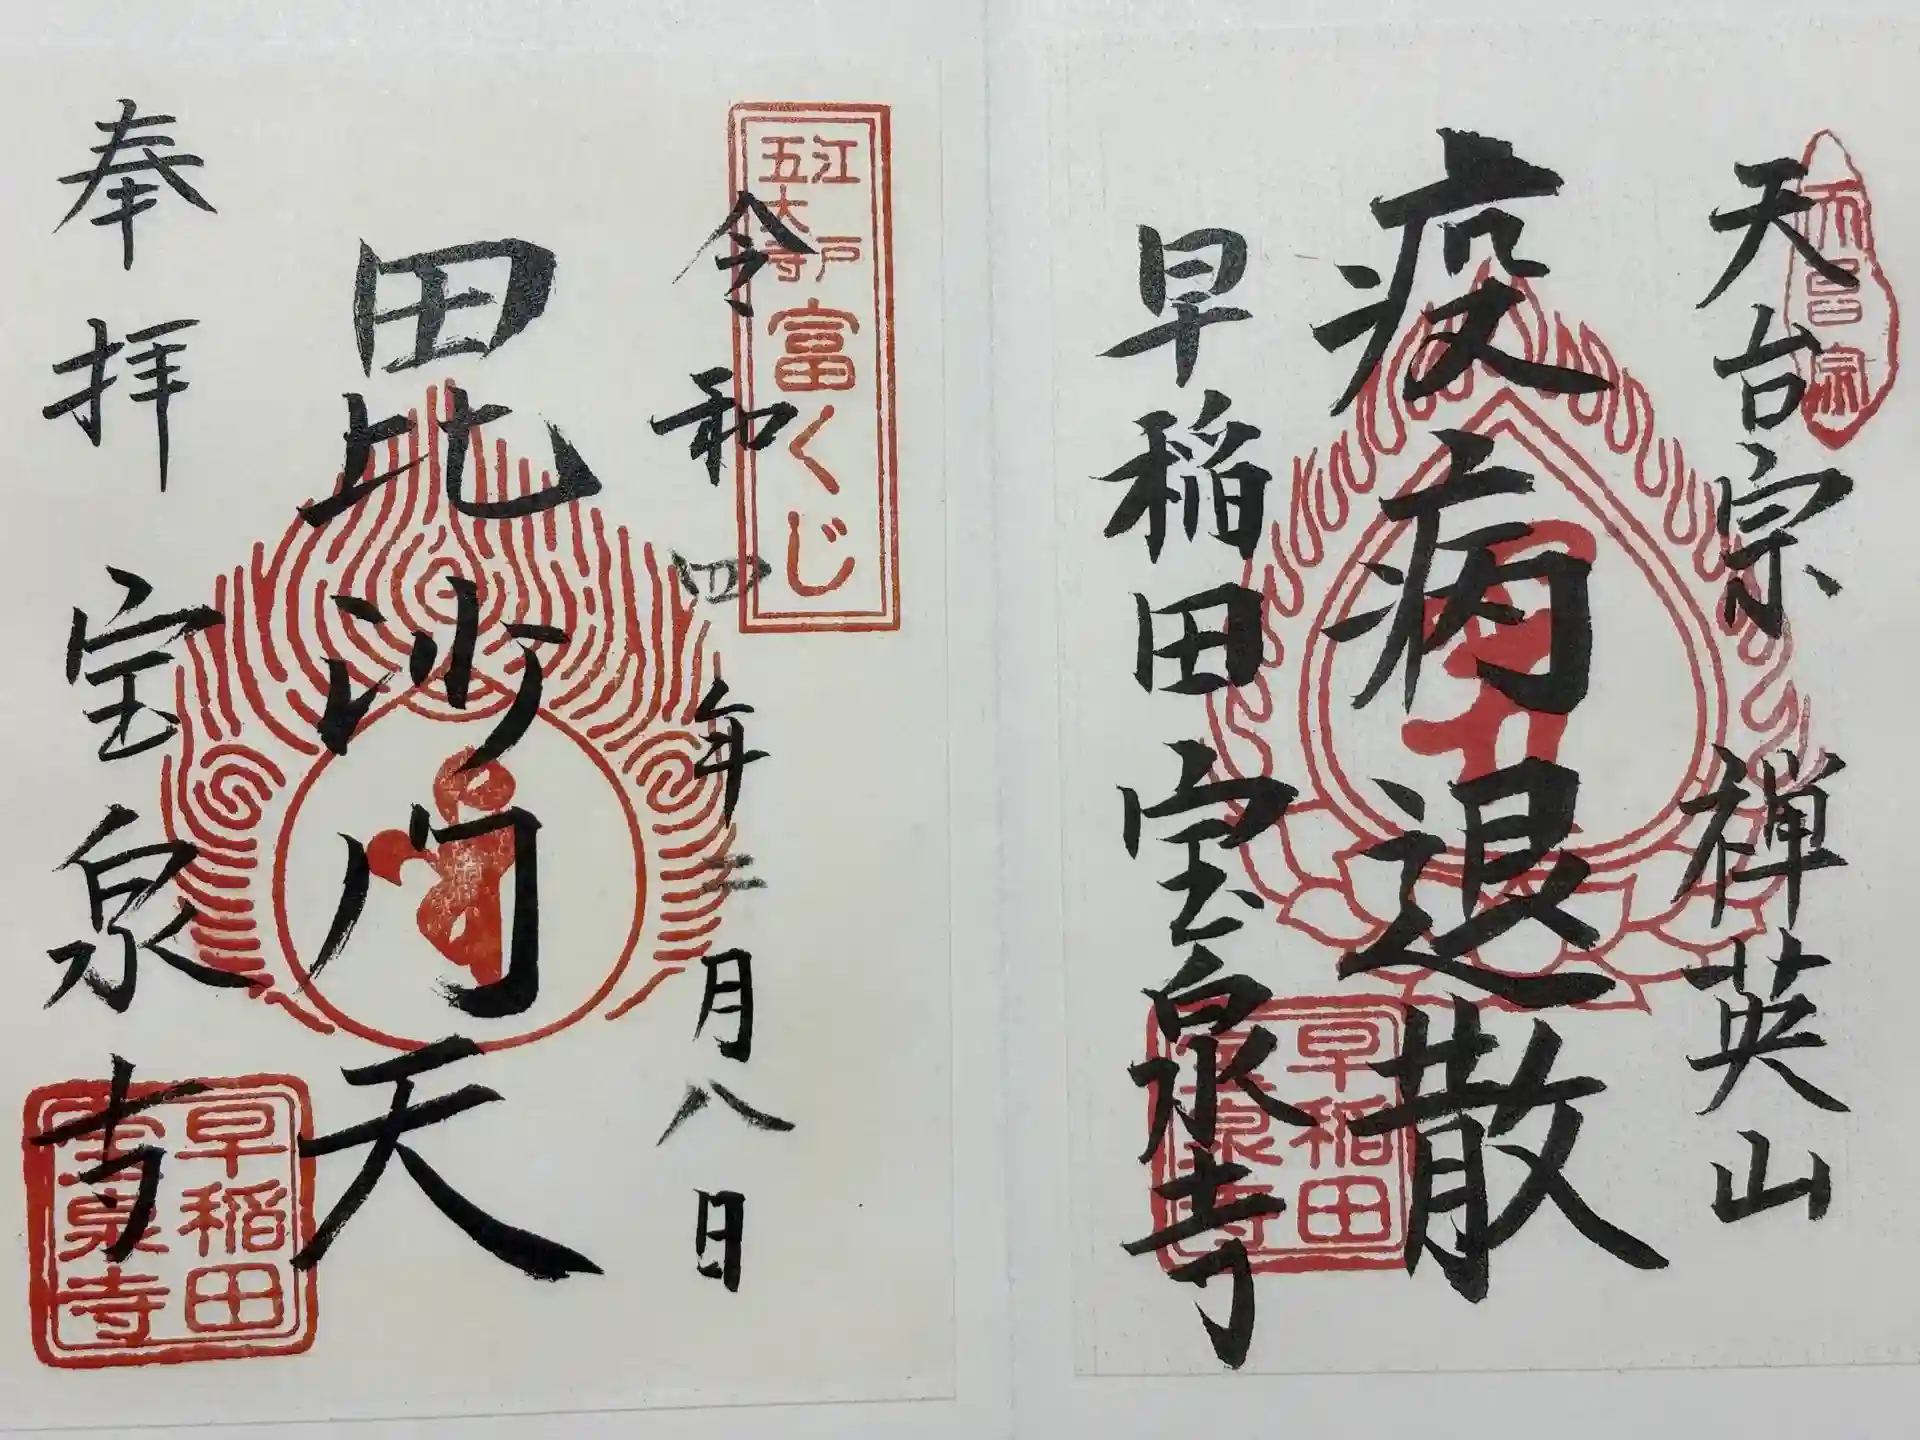 天台宗 禅英山
疫病退散
早稲田宝泉寺
早稲田
宝泉寺
江戸
五大寺
富くじ
令和四年二月八日
毘沙門天
奉拝 宝泉寺
早稲田
宝泉寺